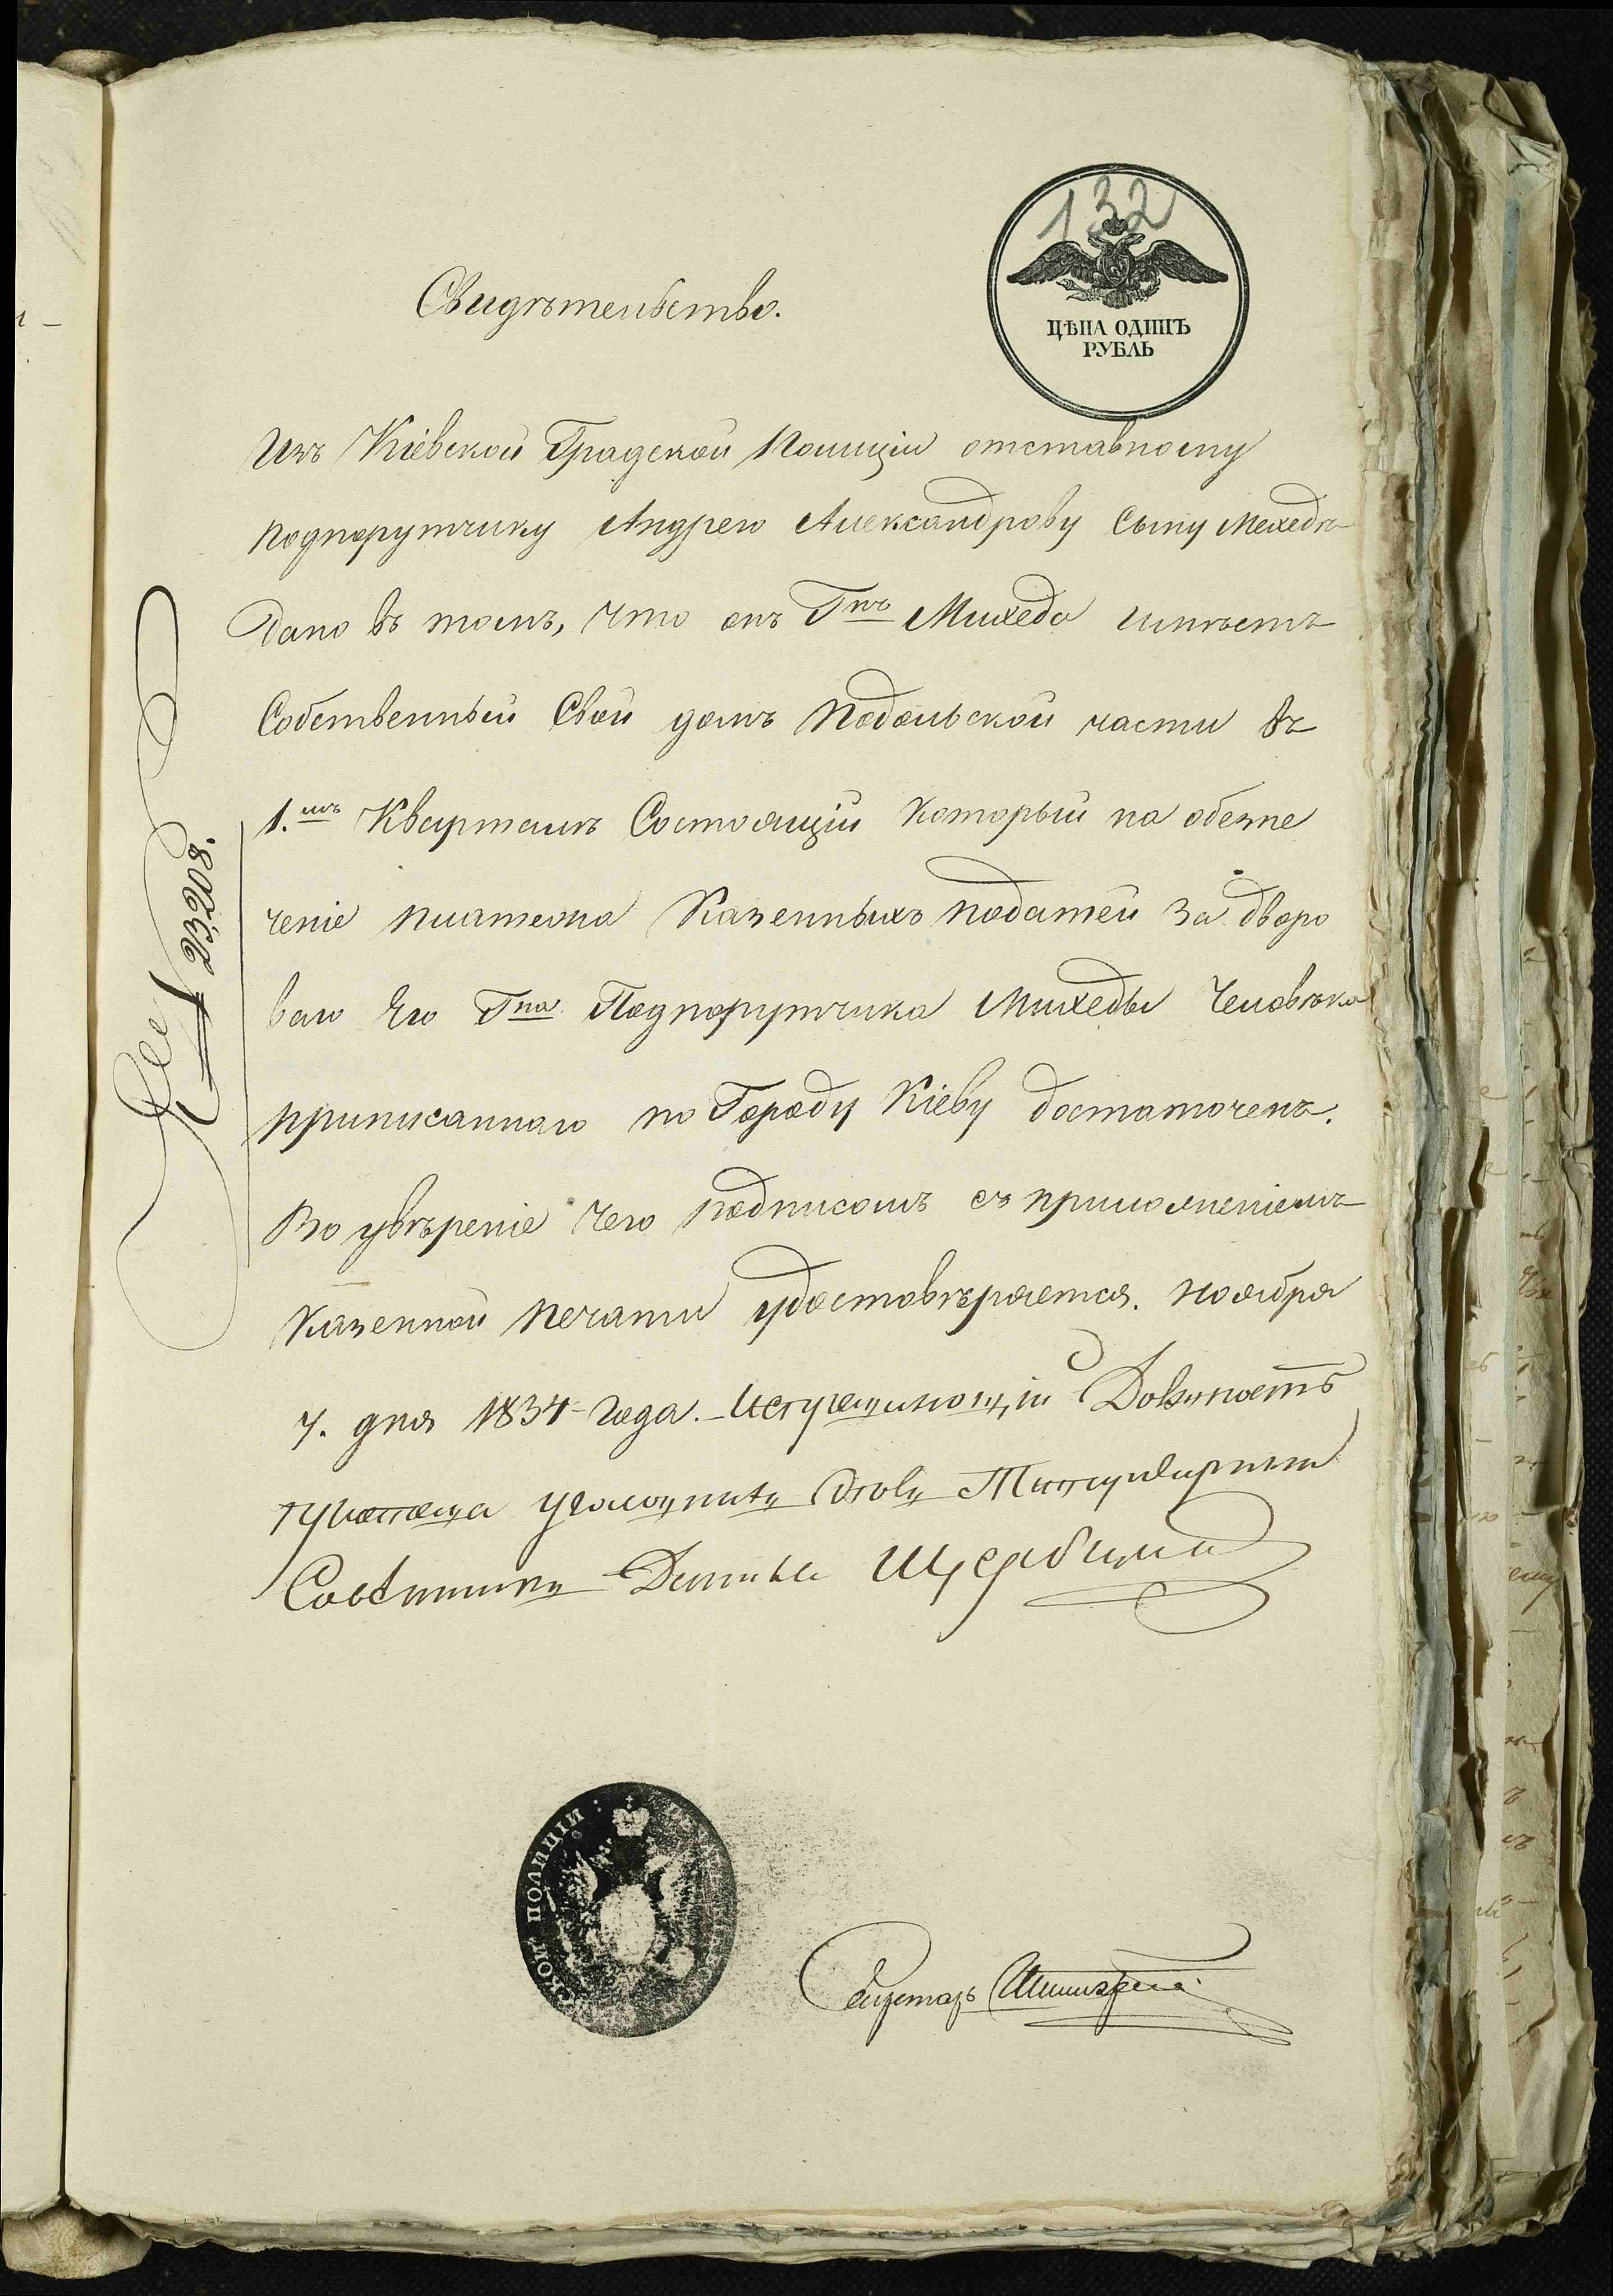 132
ЦѢНА ОДИНЪ
РУБЛЬ
Свидѣтельство.
Изъ Кіевской Градской Полиціи отставному
подпорутчику Андрею Александрову Сыну Мехедѣ
дано въ томъ, что онъ Гнъ Михеда имѣетъ
Собственный Свой домъ Подольской части въ
1.мъ Кварталѣ Состоящій который на обезпе
ченіе платежа Казенныхъ податей за дворо
ваго Его Гна Подпорутчика Михеды Человѣка
приписаннаго по Городу Кіеву достаточенъ.
Во увѣреніе чего подписомъ съ приложеніемъ
Казенной печати удостовѣряется. Ноября
7. дня 1834 года. Исправляющій Должность
Титулярный
Совѣтникъ Щербина
23,208.
СКОЙ ПОЛИЦІИ